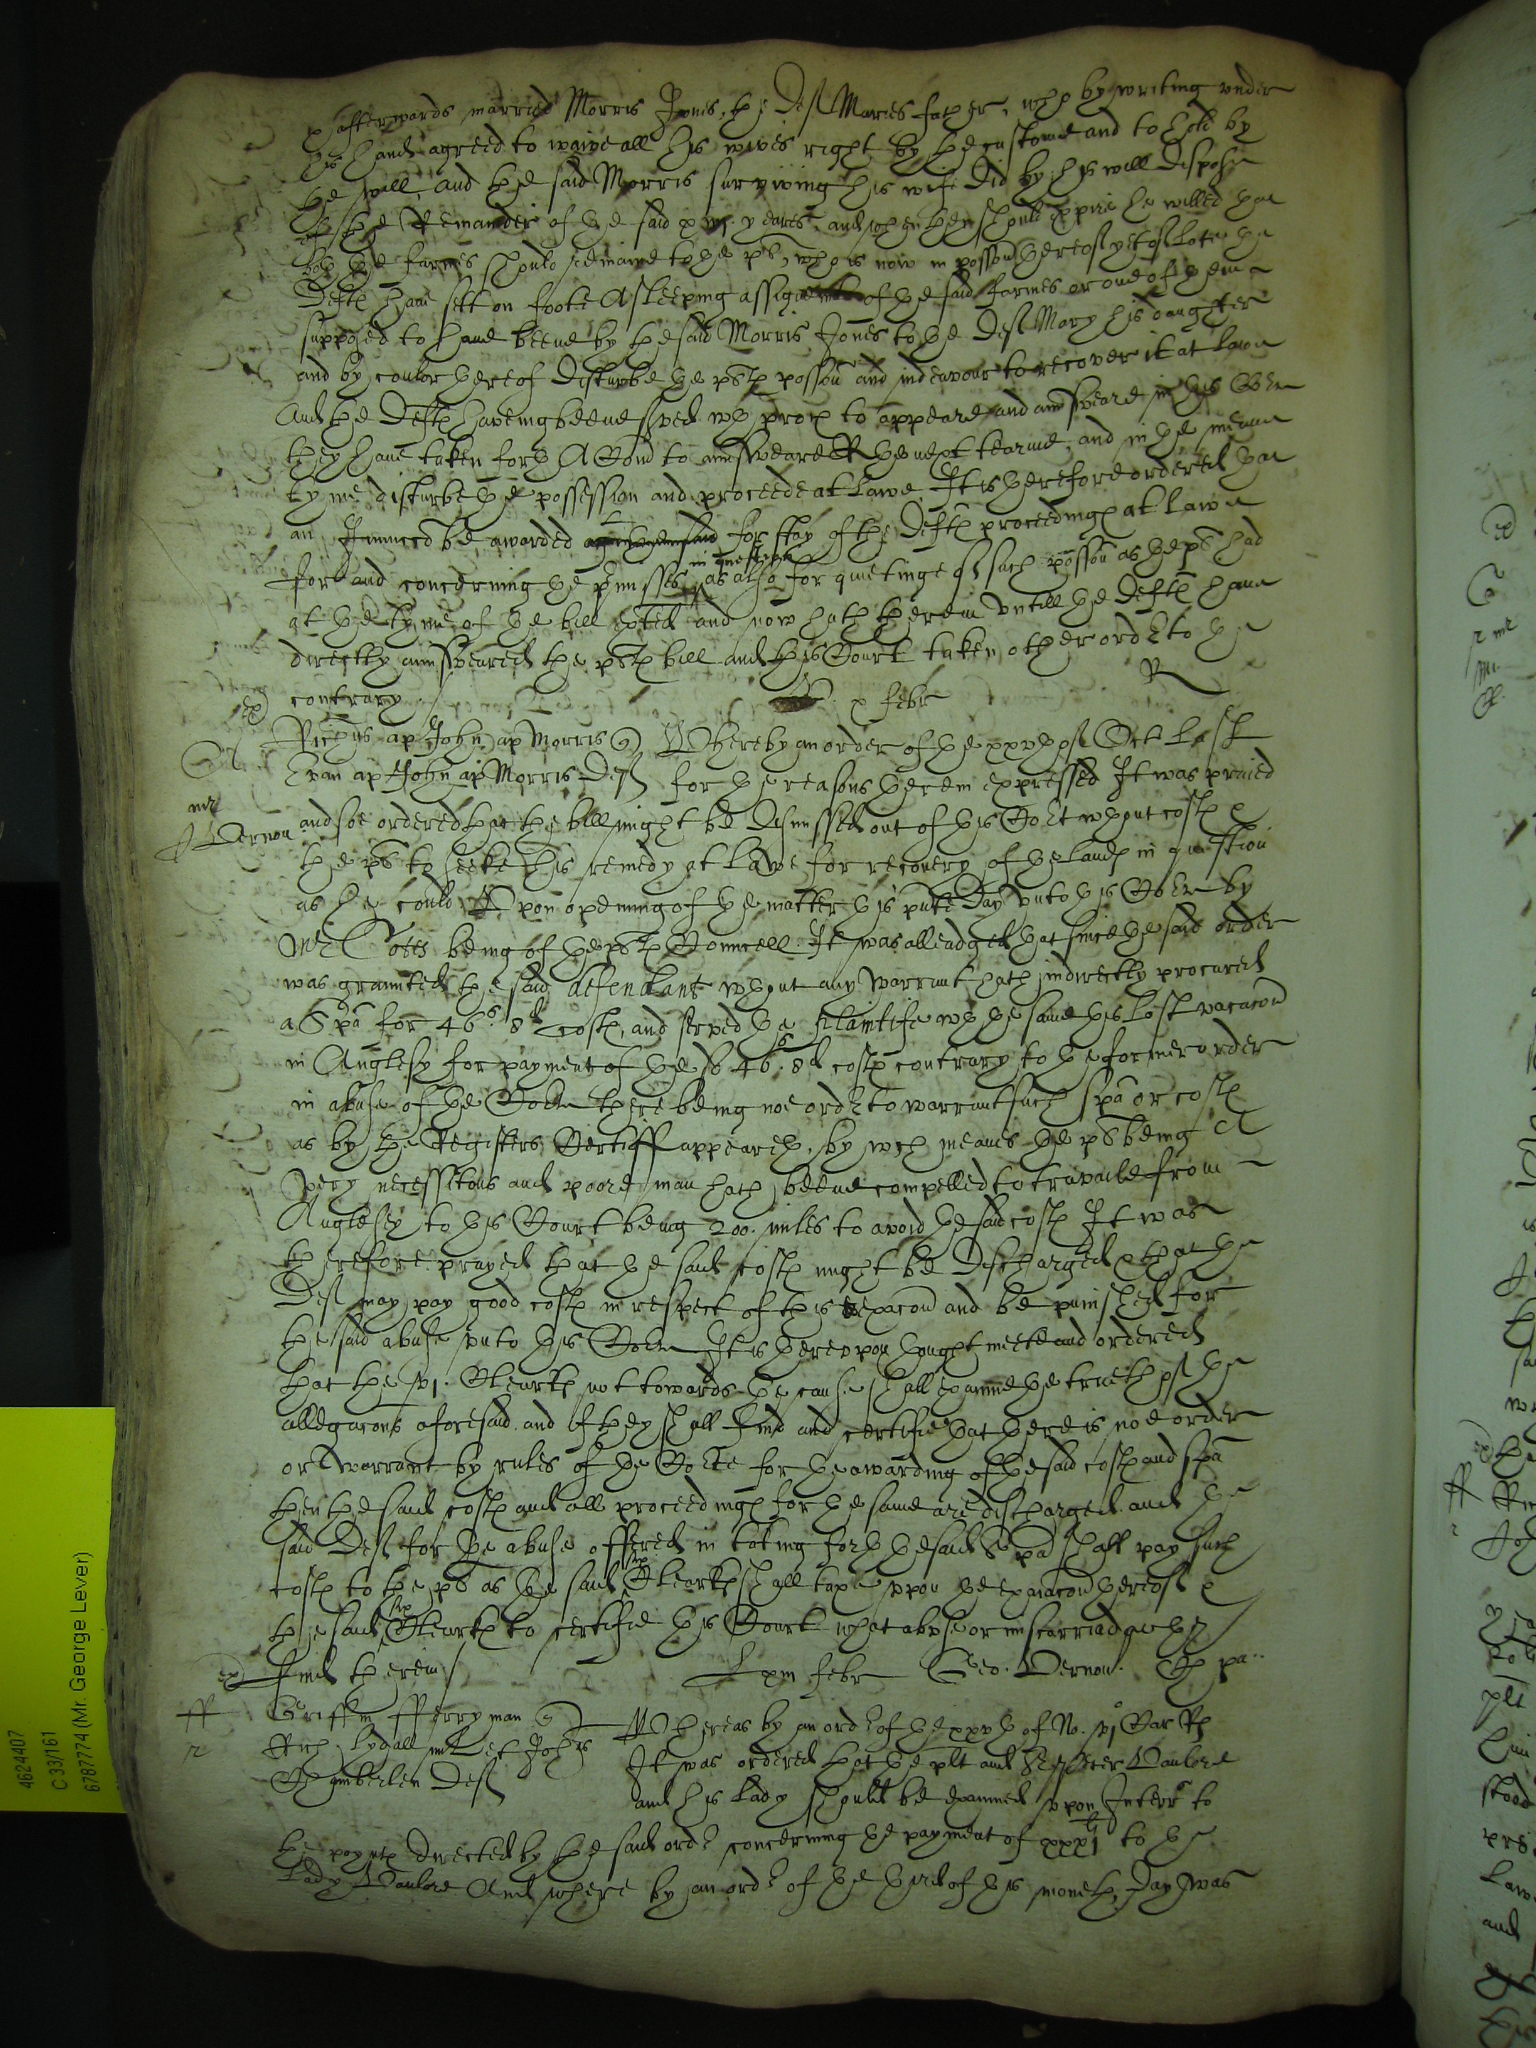 afterwards married Morris Jones, the Deft Maries father, who by writing under
his hand agreed to waive all his wives right by the custome and to hold by
the will, and the said Morris surviving his wife did by his will dispose
of the Remainder of the said yeares, and when they should expire he willed that
both the farmes should remaine to the pl, who is now in possion thereof yet of late the
Defts have sett on foote A sleeping assignemt of the said farmes or one of them
supposed to have beene by the said Morris Jones to the Deft Mary his daughter
and by coulor thereof disturbe the plts possion and indeavour to recover it at Lawe
And the Defts haveing beene served wth proces to appeare and aunsweare in this Court
they have taken forth A to aunsweare the next tearme, and in the meane
tyme disturbe the possession and proceede at Lawe. It is therefore ordered that
an Iniuncc be awarded for stay of the Defts proceedings at Lawe
for and concerning the premisses in question as also for quietinge of such possion as the pl had
at the tyme of the bill exhited and now hath therein Untill the Defts have
directly aunsweared the plts bill and this Court taken other order to the
contrary R
x Febr
Richus ap John ap Morris Whereby an order of the xxvth of Oct last
Evan ap John ap Morris Deft for the reasons therein expressed It was praied
mr Vernon and soe ordered that the bill might be dismissed out of this Court wthout costs &
the pl to seeke his remedy at Lawe for recovery of the lands in question
as he could Upon opening of the matter this pnte day unto this Court by
Mr being of the plts Councell. It was alleadged that since the said order
was graunted the said defendant wthout any Warrant hath indirectly procured
a Spa for 46s 8d costs, and served the plaintife wth the same this last vacacon
in Anglesy for payment of the sd 46s 8d costs contrary to the former order
in abuse of the Court there being noe order to warrant such spa or costs
as by the Registers Certiff appeareth, by wch meanes the pl being A
very necessitous and poore man hath beene compelled to travaile from
Anglesey to this Court being 200 miles to avoid the said costs It was
therefore prayed that the said costs might be discharged & that the
Deft may pay good costs in respect of this vexacon and be punished for
the said abuse unto this Court It is thereupon thought meete and ordered
that the vj Clearks not towards the cause shall examine the trueth of the
allegacons aforesaid and if they shall find and certifie that there is noe order
or warrant by rules of the Court for the awarding of the said costs and spa
then the said costs and all proceedings for the same are discharged and the
said Deft for the abuse offered in taking forth the said Spa shall pay such
costs to the pl as the said six Clearks shall taxe uppon the examacon thereof &
the said six Clearks to certifie this Court what abuse or miscarriadge they
find therein xiij Febr Geo. Vernon.
Griffin fferryman Whereas by an order of the xxvth of No. vjo Car Rs
Rich Lydall mil et Johes It was ordered that the plt and Sr Peter Vanlore
Chamberlen Deft and his Lady should be examined upon Interr to
the poynts directed by the said order concerning the payment of xxxli to the
Lady Vanlore And where by an order of the third of this moneth Day was
4624407
C 33/161
6787774 (Mr. George Lever)